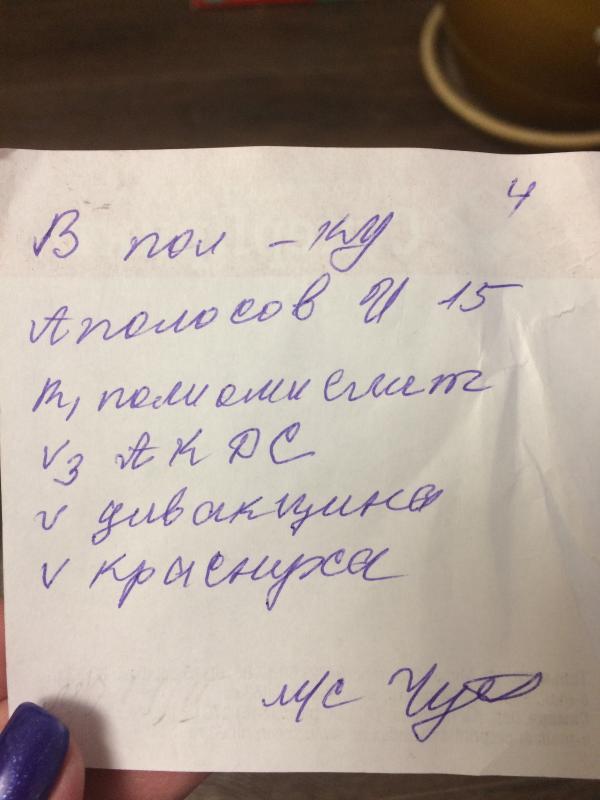 4
В пол-ку
Аполосов И 15
R₁ полиомиелит
V₃ АКДС
V дивакцина
V краснуха
м/с